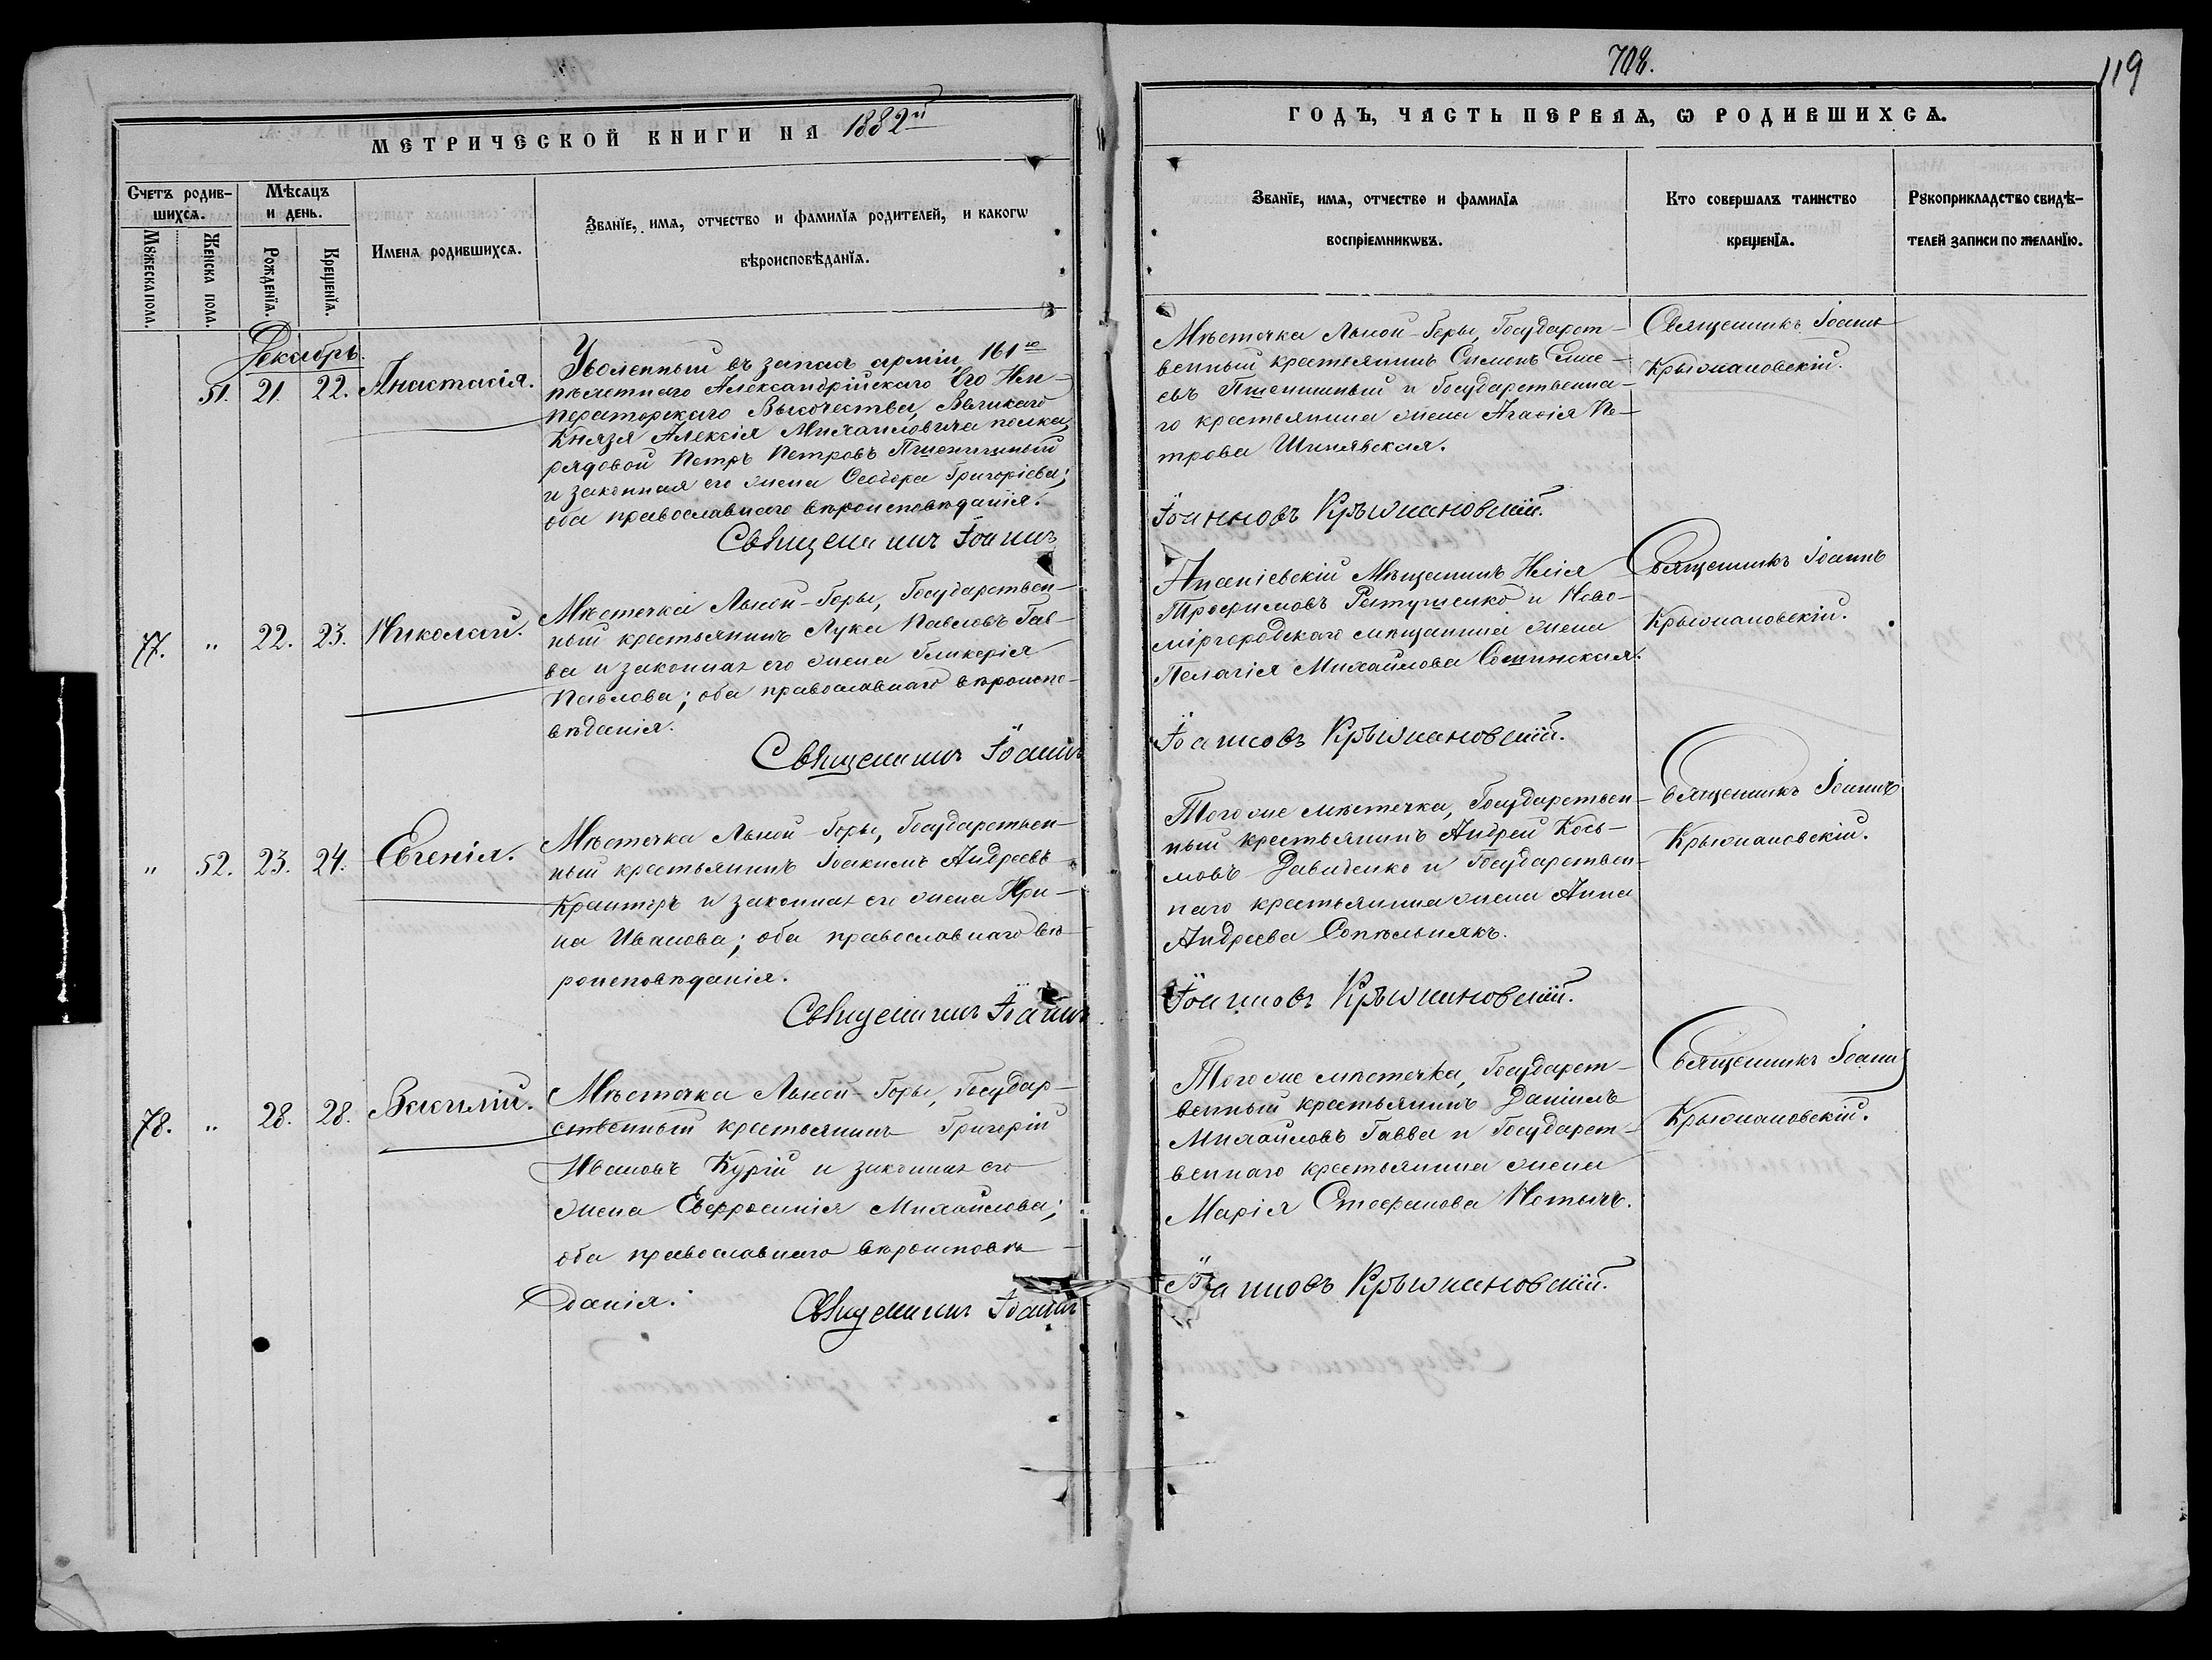 708.
119
МЕТРИЧЕСКОЙ КНИГИ НА 1882й
ГОДЪ, ЧАСТЬ ПЕРВАЯ, Ѡ РОДИВШИХСѦ.
Счетъ родив-
шихсѧ.
Мѣсѧцъ
и день.
Мꙋжеска пола.
Женска пола.
Рожденїѧ.
Крещенїѧ.
Имена родившихсѧ.
Званїе, имѧ, отчество и фамилїѧ родителей, и какогѡ
вѣроисповѣданїѧ.
Званїе, имѧ, отчество и фамилїѧ
воспрїемникѡвъ.
Кто совершалъ таинство
крещенїѧ.
Рꙋкоприкладство свидѣ-
телей записи по желанїю.
Декабрь.
51. 21. 22. Анастасія.
Уволенный въ запасъ арміи, 161го
пѣхотнаго Александрійскаго Его Им-
ператорскаго Высочества, Великаго
Князя Алексія Михаиловича полка,
рядовой Петръ Петровъ Пшеничный
и законная его жена Ѳеодора Григоріева;
оба православнаго вѣроисповѣданія.
Священникъ Іоаннъ
Мѣстечка Лысой-Горы, Государст-
венный крестьянинъ Симеонъ
евъ Пшеничный и Государственна-
го крестьянина жена Агафія Пе-
трова Шинявская.
Іоанновъ Крыжановскій.
Священникъ Іоаннъ
Крыжановскій.
77. " 22. 23. Николай.
Мѣстечка Лысой-Горы, Государствен-
ный крестьянинъ Лука Павловъ Гав-
ва и законная его жена Гликерія
Павлова; оба православнаго вѣроиспо-
вѣданія.
Священникъ Іоаннъ
Ананіевскій Мѣщанинъ Илія
Трофимовъ Ратушенко и Ново-
міргородскаго мѣщанина жена
Пелагія Михайлова Сошинская.
Іоанновъ Крыжановскій.
Священникъ Іоаннъ
Крыжановскій.
" 52. 23. 24. Евгенія.
Мѣстечка Лысой-Горы, Государствен-
ный крестьянинъ Іоакимъ Андреевъ
и законная его жена Ири-
на Иванова; оба православнаго вѣ-
роисповѣданія.
Священникъ Іоаннъ
Того же мѣстечка, Государствен-
ный крестьянинъ Андрей Кось-
мовъ Давиденко и Государствен-
наго крестьянина жена Анна
Андреева Сопѣльнякъ.
Іоанновъ Крыжановскій.
Священникъ Іоаннъ
Крыжановскій.
78. " 28. 28. Василій.
Мѣстечка Лысой-Горы, Государ-
ственный крестьянинъ Григорій
Ивановъ Кургій и законная его
жена Евфросинія Михайлова;
оба православнаго вѣроисповѣ-
данія.
Священникъ Іоаннъ
Того же мѣстечка, Государст-
венный крестьянинъ Даніилъ
Михайловъ Гавва и Государст-
веннаго крестьянина жена
Марія Стефанова
Іоанновъ Крыжановскій.
Священникъ Іоаннъ
Крыжановскій.